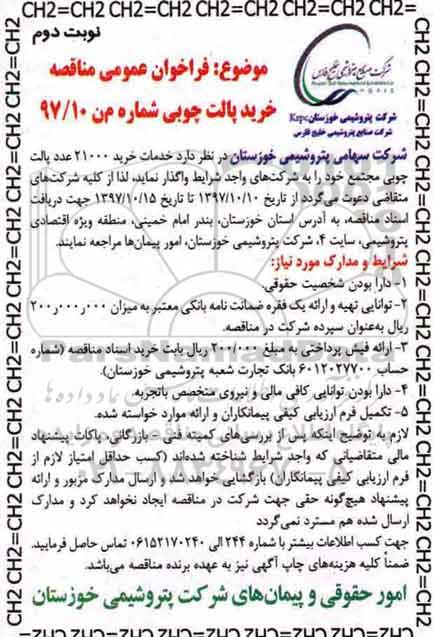 CH2=CH2 CH2=CH2 CH2=CH2 CH2=CH2 CH2=CH2 CH2=
نوبت دوم
شرکت صنایع پتروشیمی خلیج فارس
شرکت پتروشیمی خوزستان Kzpc
شرکت صنایع پتروشیمی خلیج فارس
موضوع: فراخوان عمومی مناقصه
خرید پالت چوبی شماره م‌ن ۹۷/۱۰
شرکت سهامی پتروشیمی خوزستان در نظر دارد خدمات خرید ۲۱۰۰۰ عدد پالت
چوبی مجتمع خود را به شرکت‌های واجد شرایط واگذار نماید، لذا از کلیه شرکت‌های
متقاضی دعوت می‌گردد از تاریخ ۱۳۹۷/۱۰/۱۰ تا تاریخ ۱۳۹۷/۱۰/۱۵ جهت دریافت
اسناد مناقصه، به آدرس استان خوزستان، بندر امام خمینی، منطقه ویژه اقتصادی
پتروشیمی، سایت ۴، شرکت پتروشیمی خوزستان، امور پیمان‌ها مراجعه نمایند.
شرایط و مدارک مورد نیاز:
۱- دارا بودن شخصیت حقوقی.
۲- توانایی تهیه و ارائه یک فقره ضمانت نامه بانکی معتبر به میزان ۲۰۰ر۰۰۰ر۰۰۰
ریال به‌عنوان سپرده شرکت در مناقصه.
۳- ارائه فیش پرداختی به مبلغ ۲۰۰/۰۰۰ ریال بابت خرید اسناد مناقصه (شماره
حساب ۶۰۱۲۰۲۷۷۰۰ بانک تجارت شعبه پتروشیمی خوزستان).
۴- دارا بودن توانایی کافی مالی و نیروی متخصص باتجربه.
۵- تکمیل فرم ارزیابی کیفی پیمانکاران و ارائه موارد خواسته شده.
لازم به توضیح اینکه پس از بررسی‌های کمیته فنی - بازرگانی، پاکات پیشنهاد
مالی متقاضیانی که واجد شرایط شناخته شده‌اند (کسب حداقل امتیاز لازم از
فرم ارزیابی کیفی پیمانکاران) بازگشایی خواهد شد و ارسال مدارک مزبور و ارائه
پیشنهاد هیچ‌گونه حقی جهت شرکت در مناقصه ایجاد نخواهد کرد و مدارک
ارسال شده هم مسترد نمی‌گردد
جهت کسب اطلاعات بیشتر با شماره ۲۴۴ الی ۰۶۱۵۲۱۷۰۲۴۰ تماس حاصل فرمایید.
ضمناً کلیه هزینه‌های چاپ آگهی نیز به عهده برنده مناقصه می‌باشد.
امور حقوقی و پیمان‌های شرکت پتروشیمی خوزستان
ParsNamadData